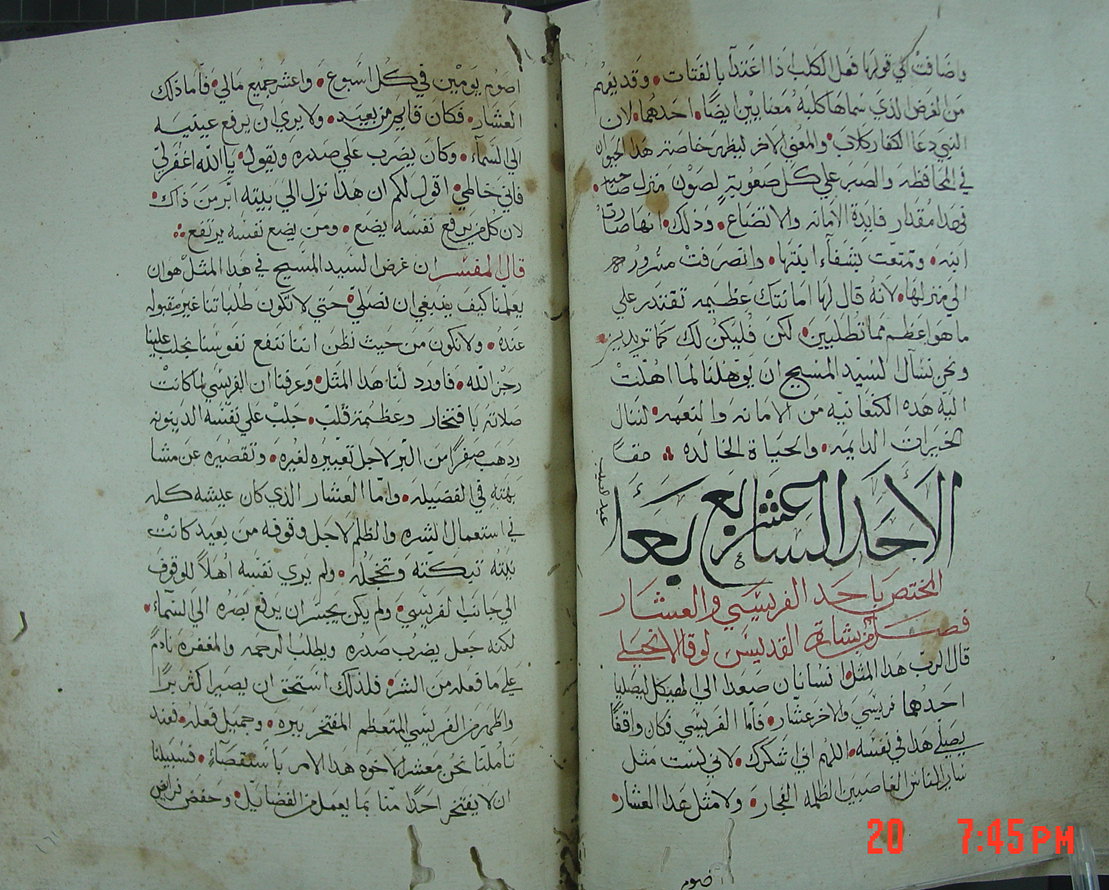 واضافت كي قولها فعل الكلب اذا اغتدا بالفتات • وقد يفهم
من الغرض الذي سماها كلبة معنايين ايضا • احدهما لان
النبي دعا الكفار كلاب • والمعني الاخر ليظهر خاصة هذا الحيوان
في المحافظه والصبر علي كل صعوبة لصون منزل صاحبه
فهدا مقدار فايدة الامانه والاتضاع • وذلك انها صارت
ابنه • وتمتعت بشفاء ابنتها • وانصرفت مسروره
الي منزلها • لانه قال لها امانتك عظيمه تقتدر علي
ما هو اعظم مما تطلبين • لكن فليكن لك كما تريدين •
ونحن نسال السيد المسيح ان يوهلنا لما اهلت
اليه هذه الكنعانيه من الامانه والنعمه • لننال
الخيرات الدايمه • والحياة الخالده • حقا
الأحد السابع عشر
المختص باحد الفريسي والعشار
فصل من بشارة القديس لوقا الانجيلي
قال الرب هذا المثل انسانان صعدا الي الهيكل ليصليا
احدهما فريسي والاخر عشار • فاما الفريسي فكان واقفا
يصلي هذا في نفسه • اللهم اني اشكرك • لاني لست مثل
ساير الناس الغاصبين الظلمه الفجار • ولا مثل هذا العشار •
اصوم
اصوم يومين في كل اسبوع • واعشر جميع مالي • فاما ذلك
العشار • فكان قايم من بعيد • ولا يري ان يرفع عينيه
الي السماء • وكان يضرب علي صدره ويقول • يا الله اغفر لي
فاني خاطي • اقول لكم ان هذا نزل الي بيته ابر من ذاك •
لان كل من يرفع نفسه ايضع • ومن يضع نفسه يرتفع
قال المفسر ان غرض السيد المسيح في هذا المثل هو ان
يعلمنا كيف ينبغي ان نصلي • حتي لا تكون طلباتنا غير مقبوله
عنده • ولا نكون من حيث نظن اننا ننفع نفوسنا نجلب علينا
رجز الله • فاورد لنا هذا المثل • وعرفنا ان الفريسي لما كانت
صلاته بافتخار وعظيمة قلب • جلب علي نفسه الدينونه
وذهب صفرا من البر لاجل تعييره لغيره • وتقصيره عن مشا
بهته في الفضيله • واما العشار الذي كان عيشه كله
في استعمال الشره والظلم لاجل وقوفه من بعيد كانت
نيته تبكته وتخجله • ولم يري نفسه اهلا للوقوف
الي جانب الفريسي • ولم يكن يجسر ان يرفع بصره الي السماء •
لكنه جعل يضرب صدره ويطلب الرحمه والمغفره نادم
علي ما فعله من الشر • فلذلك استحق ان يصير اكثر برا
واطهر من الفريسي المتعظم المفتخر ببره • وجميل فعله • فعند
تاملنا نحن معشر الاخوه هذا الامر باستقصاء • فسبيلنا
ان لا يفتخر احدا منا بما يعمل من الفضايل •
20 7:45 PM